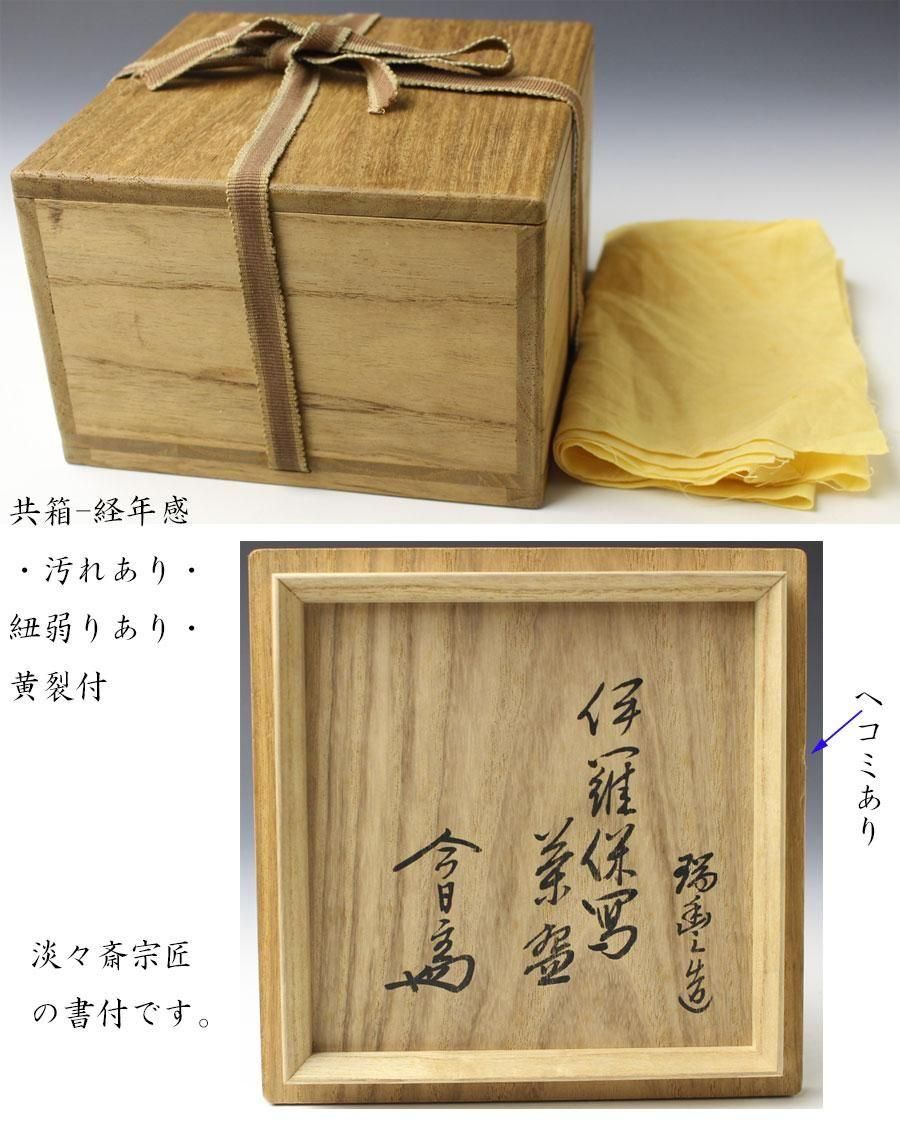 共箱-経年感
・汚れあり・
紐弱りあり・
黄裂付
ヘコミあり
瑞豊之造
伊羅保写
茶盌
今日庵
淡々斎宗匠
の書付です。